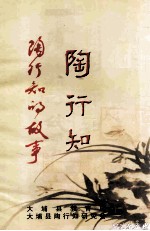 陶行知的故事
陶行知
大埔县教育
大埔县陶行知研究会